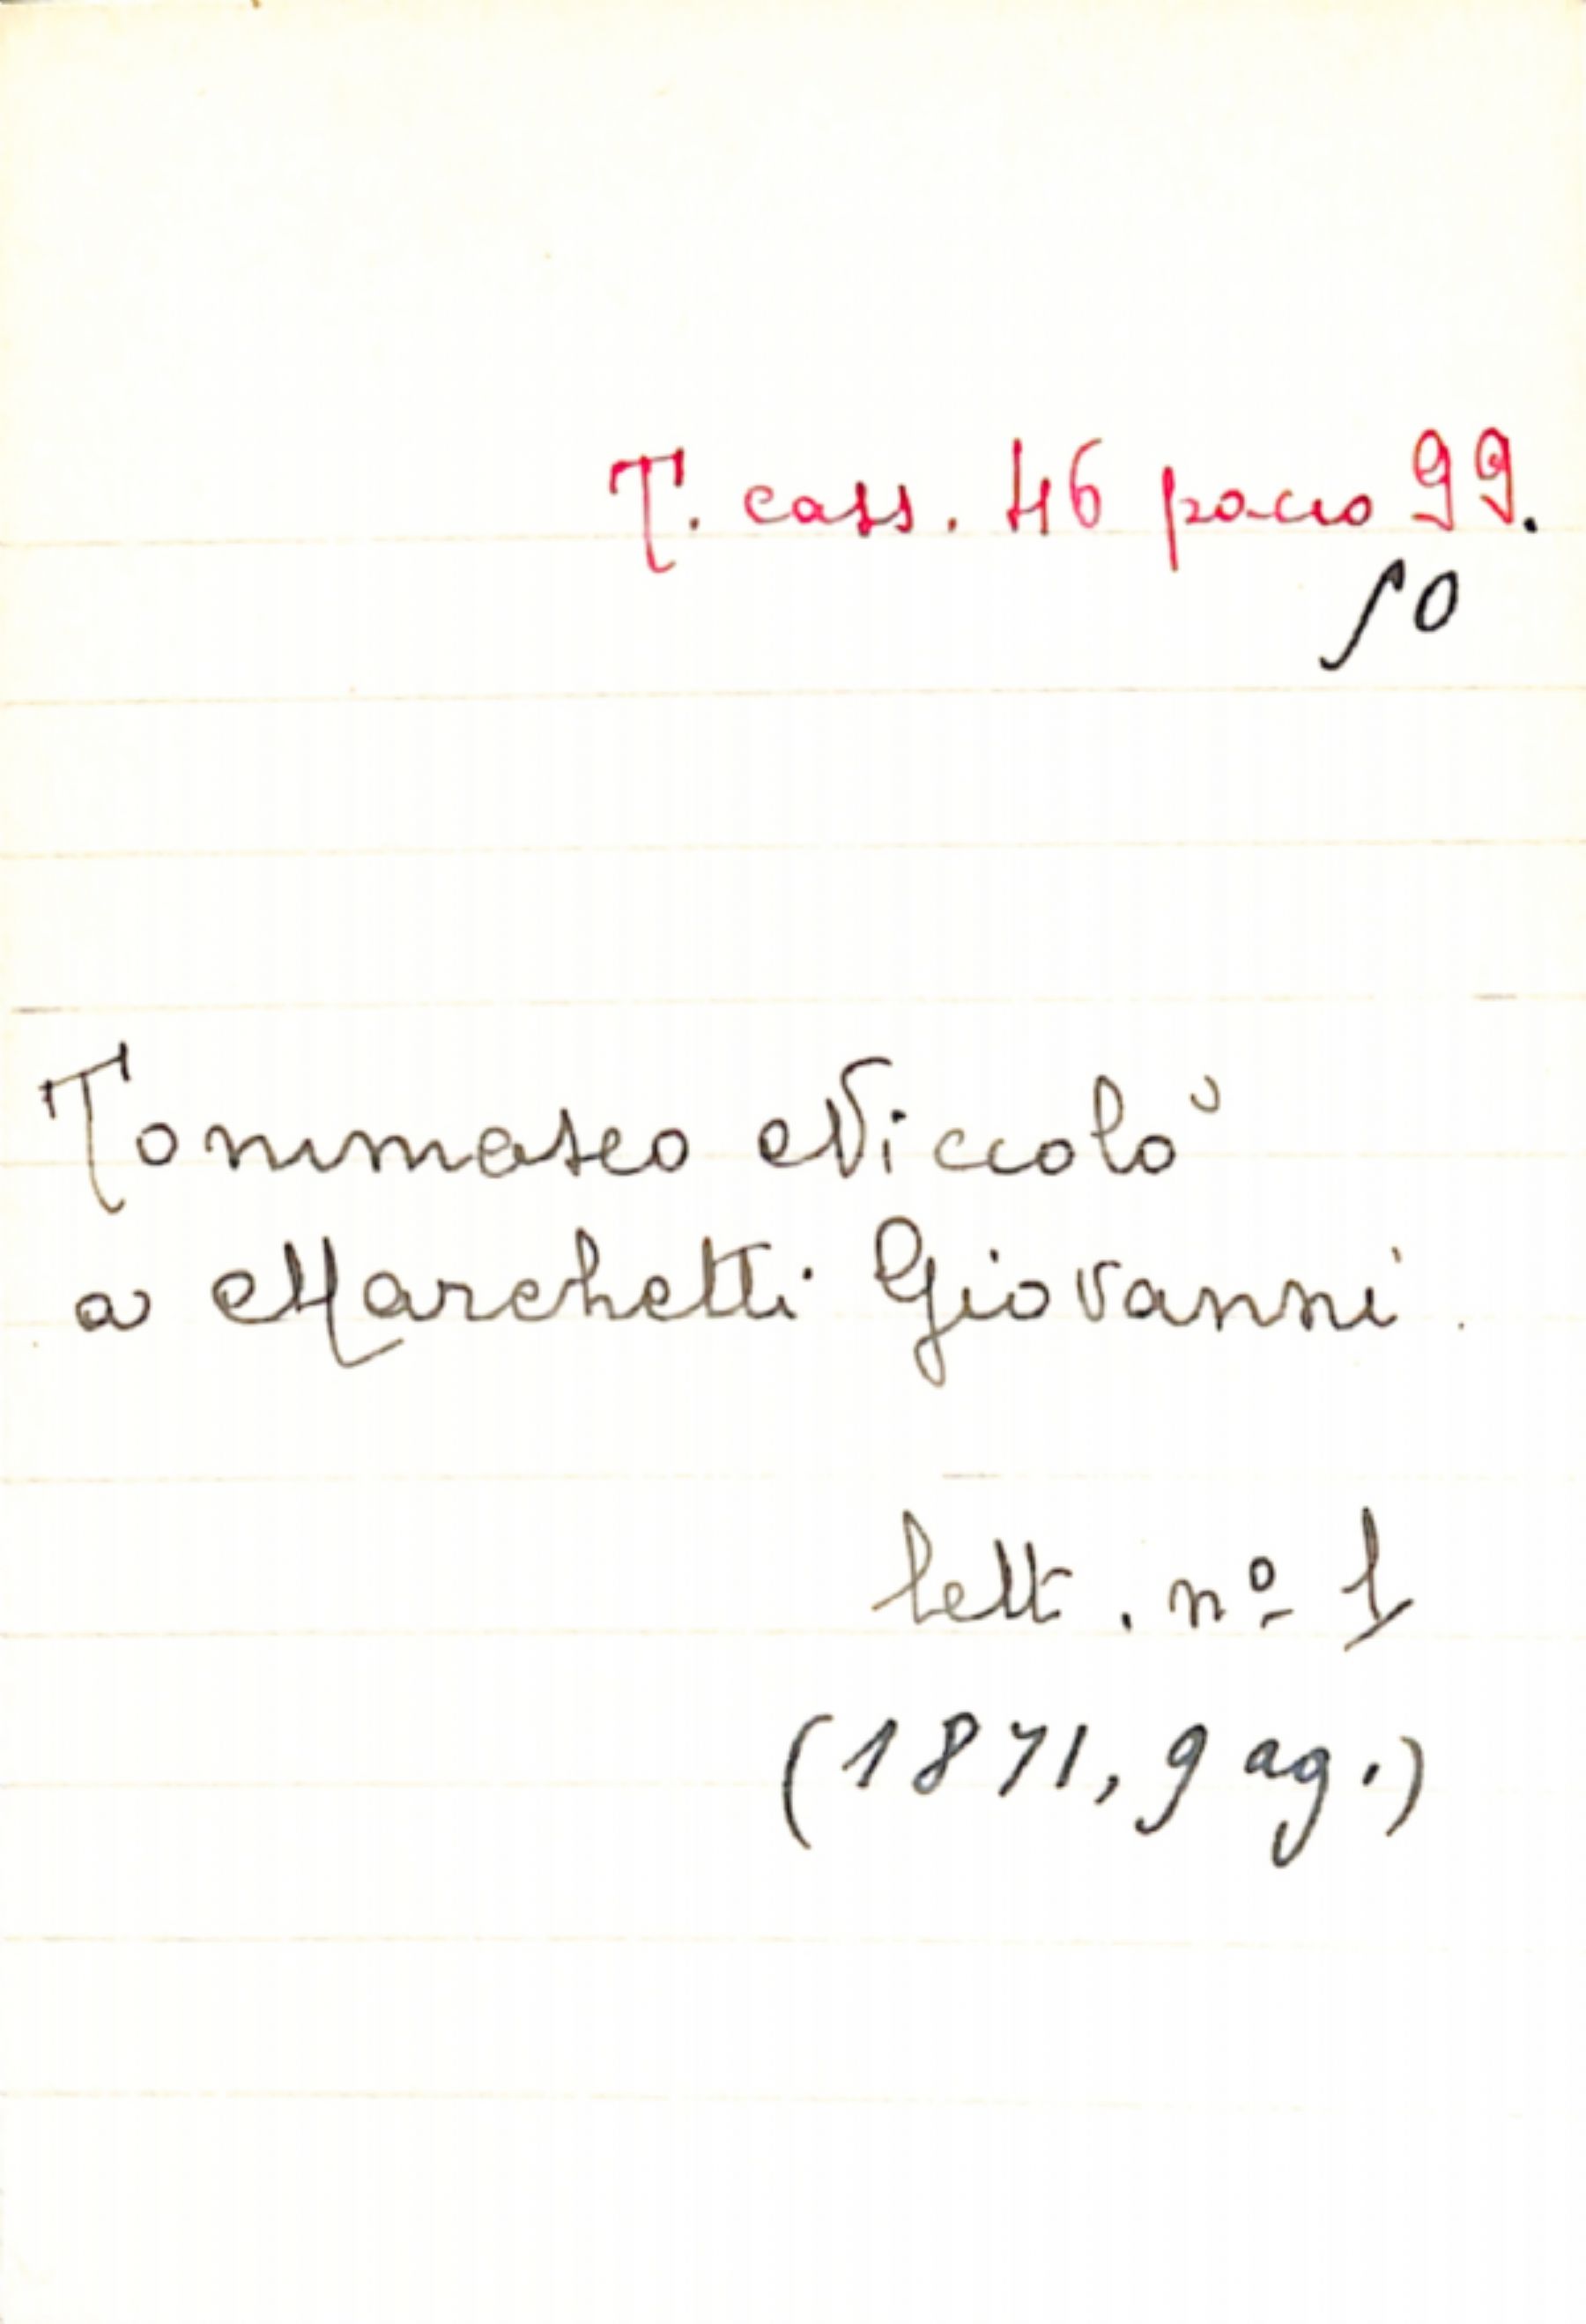 T. cass. 46 pacco 99.
50
Tommaseo Niccolò
a Marchetti Giovanni.
lett. nº 1
(1871, 9 ag.)